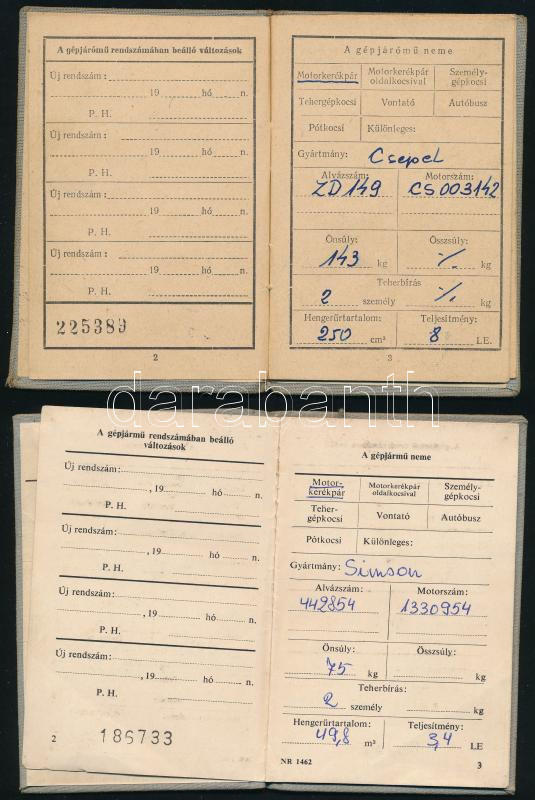 A gépjárómű rendszámában beálló változások
Új rendszám:
19 hó n.
P. H.
Új rendszám:
19 hó n.
P. H.
Új rendszám:
19 hó n.
P. H.
Új rendszám:
19 hó n.
P. H.
225389
2
A gépjárómű neme
Motorkerékpár Motorkerékpár oldalkocsival Személy-gépkocsi
Tehergépkocsi Vontató Autóbusz
Pótkocsi Különleges:
Gyártmány: Csepel
Alvázszám: Motorszám:
ZD149 CS003142
Önsúly: Összsúly:
143 kg ·/. kg
Teherbírás
2 személy ·/. kg
Hengerűrtartalom: Teljesítmény:
250 cm³ 8 LE.
3
darabanth
A gépjármű rendszámában beálló
változások
Új rendszám:
, 19 hó n.
P. H.
Új rendszám:
, 19 hó n.
P. H.
Új rendszám:
, 19 hó n.
P. H.
Új rendszám:
, 19 hó n.
P. H.
2 186733
A gépjármű neme
Motor-kerékpár Motorkerékpár oldalkocsival Személy-gépkocsi
Teher-gépkocsi Vontató Autóbusz
Pótkocsi Különleges:
Gyártmány: Simson
Alvázszám: Motorszám:
442854 1330954
Önsúly: Összsúly:
75 kg kg
Teherbírás:
2 személy kg
Hengerűrtartalom: Teljesítmény:
49,8 m³ 3,4 LE
NR 1462 3